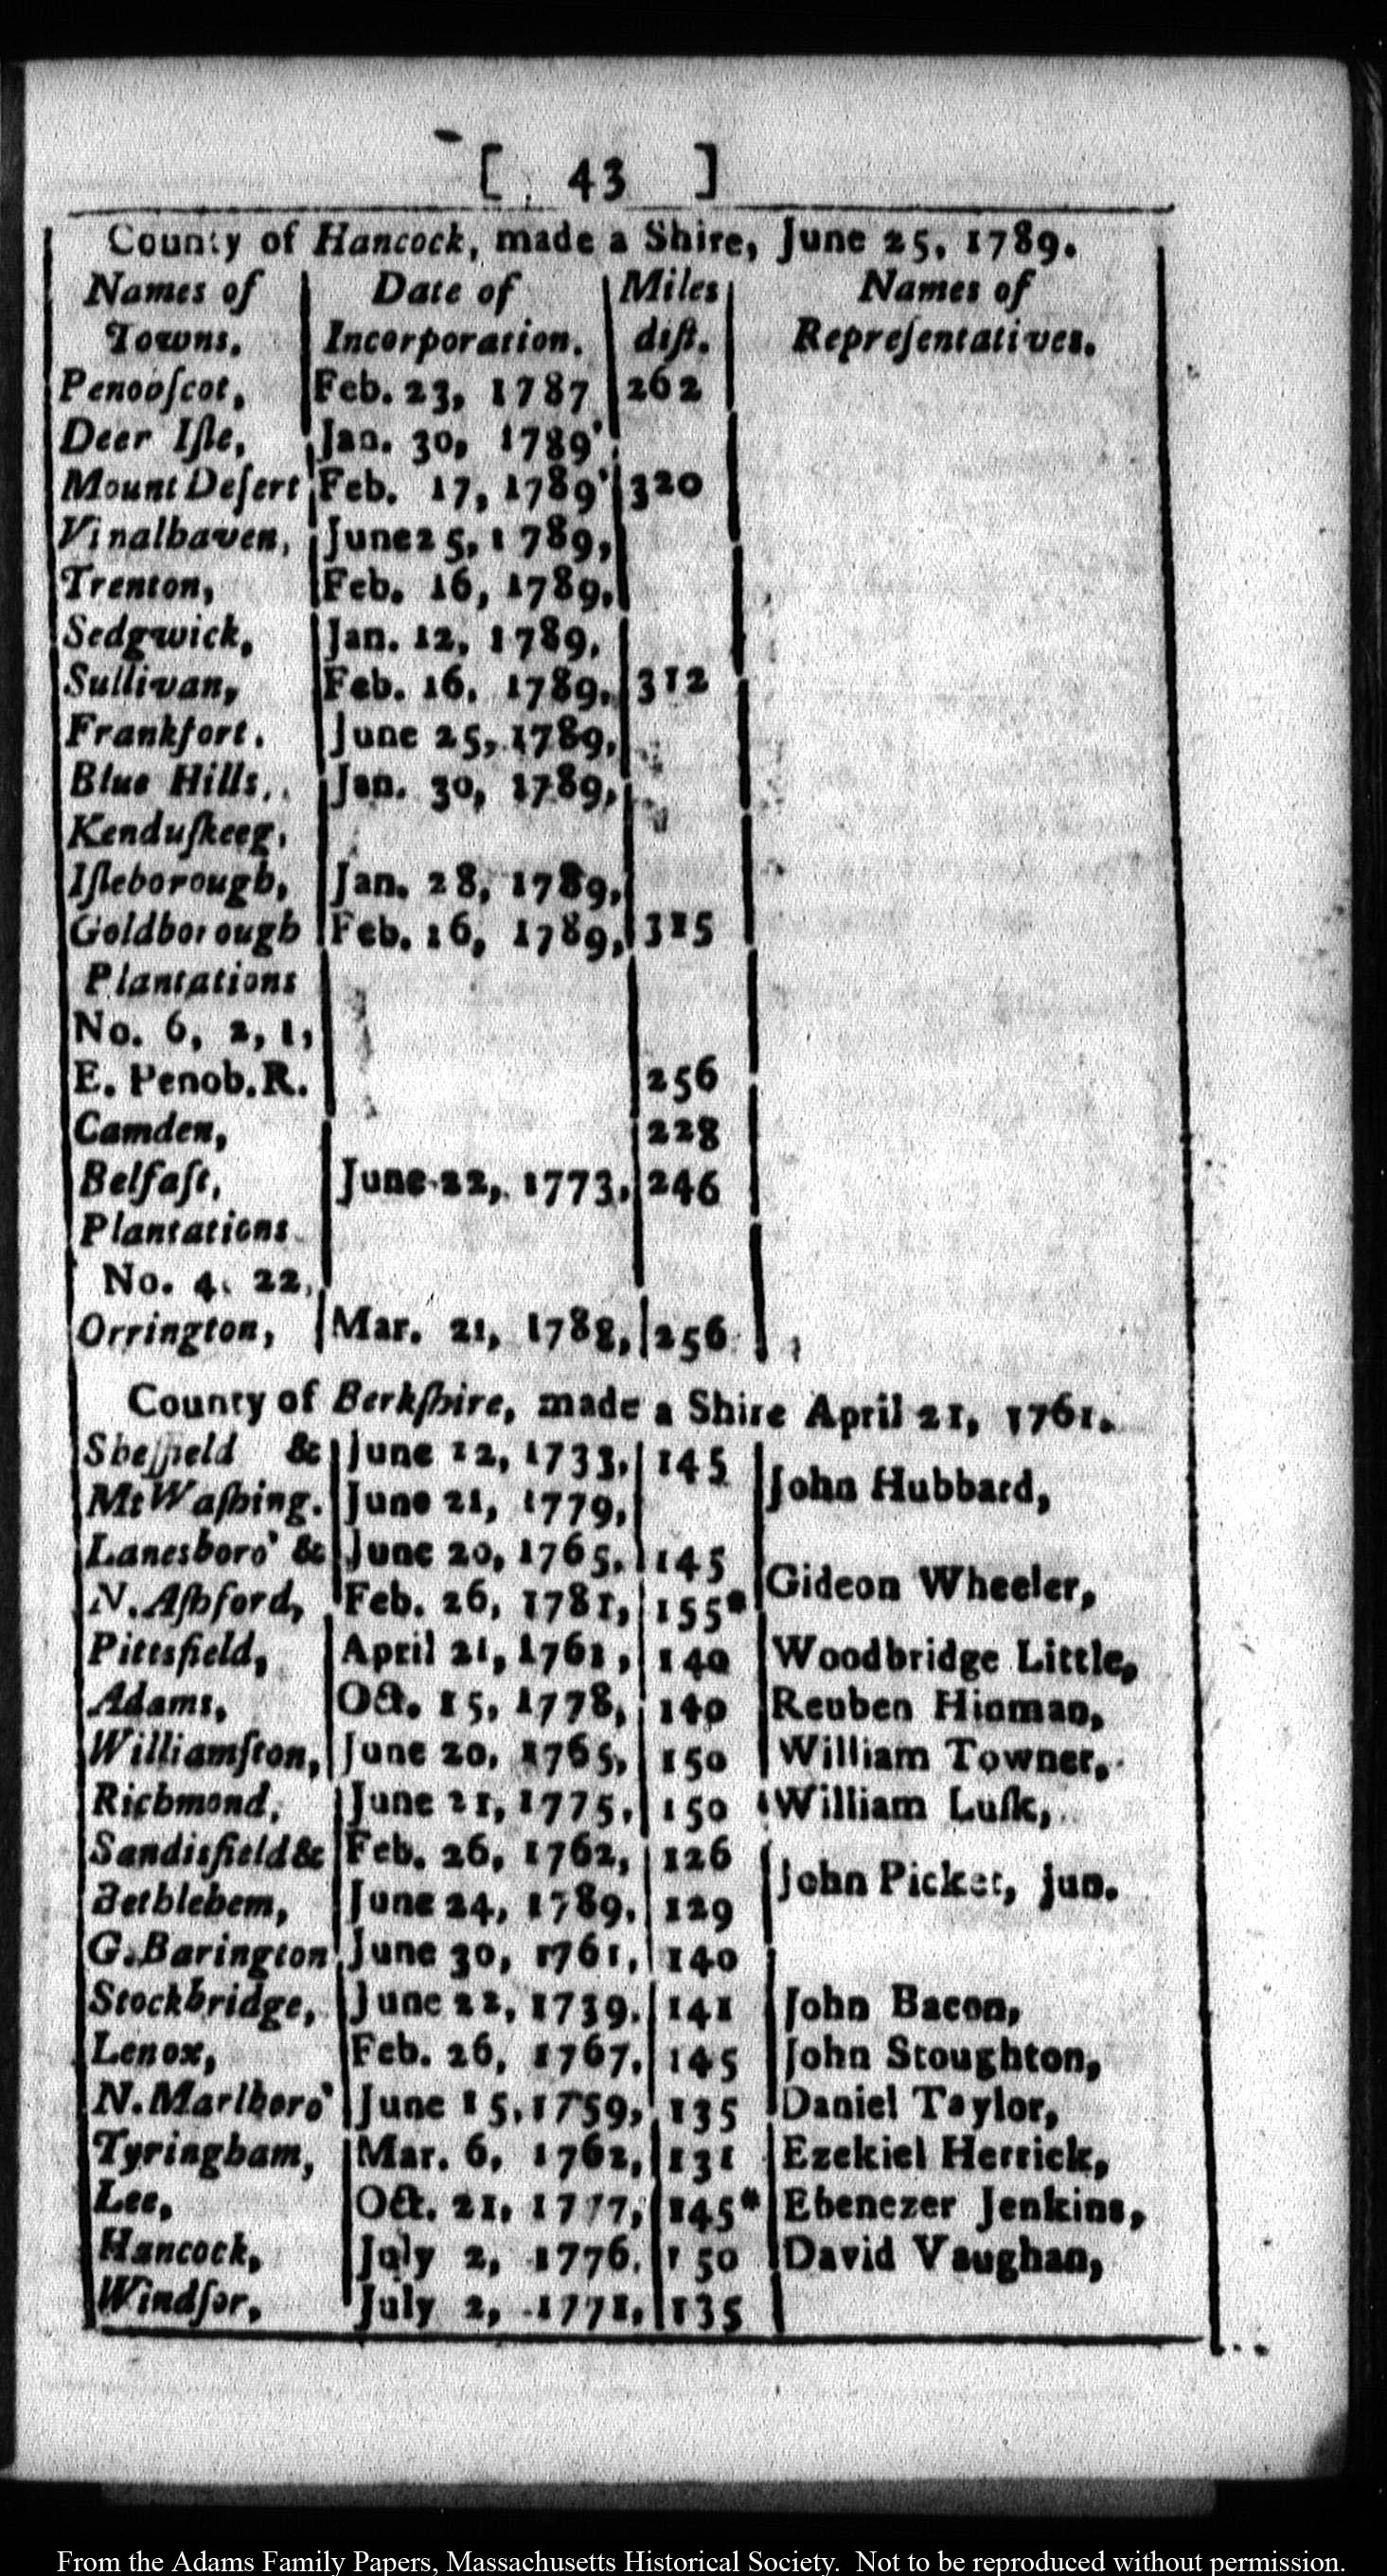 [ 43 ]
County of Hancock, made a Shire, June 25, 1789.
Names of Date of Miles Names of
Towns. Incorporation. diſt. Repreſentatives.
Penobſcot, Feb. 23, 1787 262
Deer Iſle, Jan. 30, 1789
Mount Deſert Feb. 17, 1789 320
Vinalhaven, June 25, 1789,
Trenton, Feb. 16, 1789,
Sedgwick, Jan. 12, 1789,
Sullivan, Feb. 16, 1789, 312
Frankfort. June 25, 1789,
Blue Hills, Jan. 30, 1789,
Kenduſkeeg,
Iſleborough, Jan. 28, 1789,
Goldborough Feb. 16, 1789, 315
Plantations
No. 6, 2, 1,
E. Penob. R. 256
Camden, 228
Belfaſt, June 22, 1773, 246
Plantations
No. 4, 22,
Orrington, Mar. 21, 1788, 256
County of Berkſhire, made a Shire April 21, 1761.
Sheffield & June 12, 1733, 145
John Hubbard,
Mt Waſhing. June 21, 1779,
Lanesboro' & June 20, 1765, 145
Gideon Wheeler,
N. Aſhford, Feb. 26, 1781, 155*
Pittsfield, April 21, 1761, 140 Woodbridge Little,
Adams, Oct. 15, 1778, 140 Reuben Hinman,
Williamſton, June 20, 1765, 150 William Towner,
Richmond, June 21, 1775, 150 William Luſk,
Sandisfield & Feb. 26, 1762, 126
John Picket, jun.
Bethlehem, June 24, 1789, 129
G. Barington June 30, 1761, 140
Stockbridge, June 22, 1739. 141 John Bacon,
Lenox, Feb. 26, 1767, 145 John Stoughton,
N. Marlboro' June 15, 1759, 135 Daniel Taylor,
Tyringham, Mar. 6, 1762, 131 Ezekiel Herrick,
Lee, Oct. 21, 1777, 145* Ebenezer Jenkins,
Hancock, July 2, 1776. 150 David Vaughan,
Windſor, July 2, 1771, 135
From the Adams Family Papers, Massachusetts Historical Society. Not to be reproduced without permission.